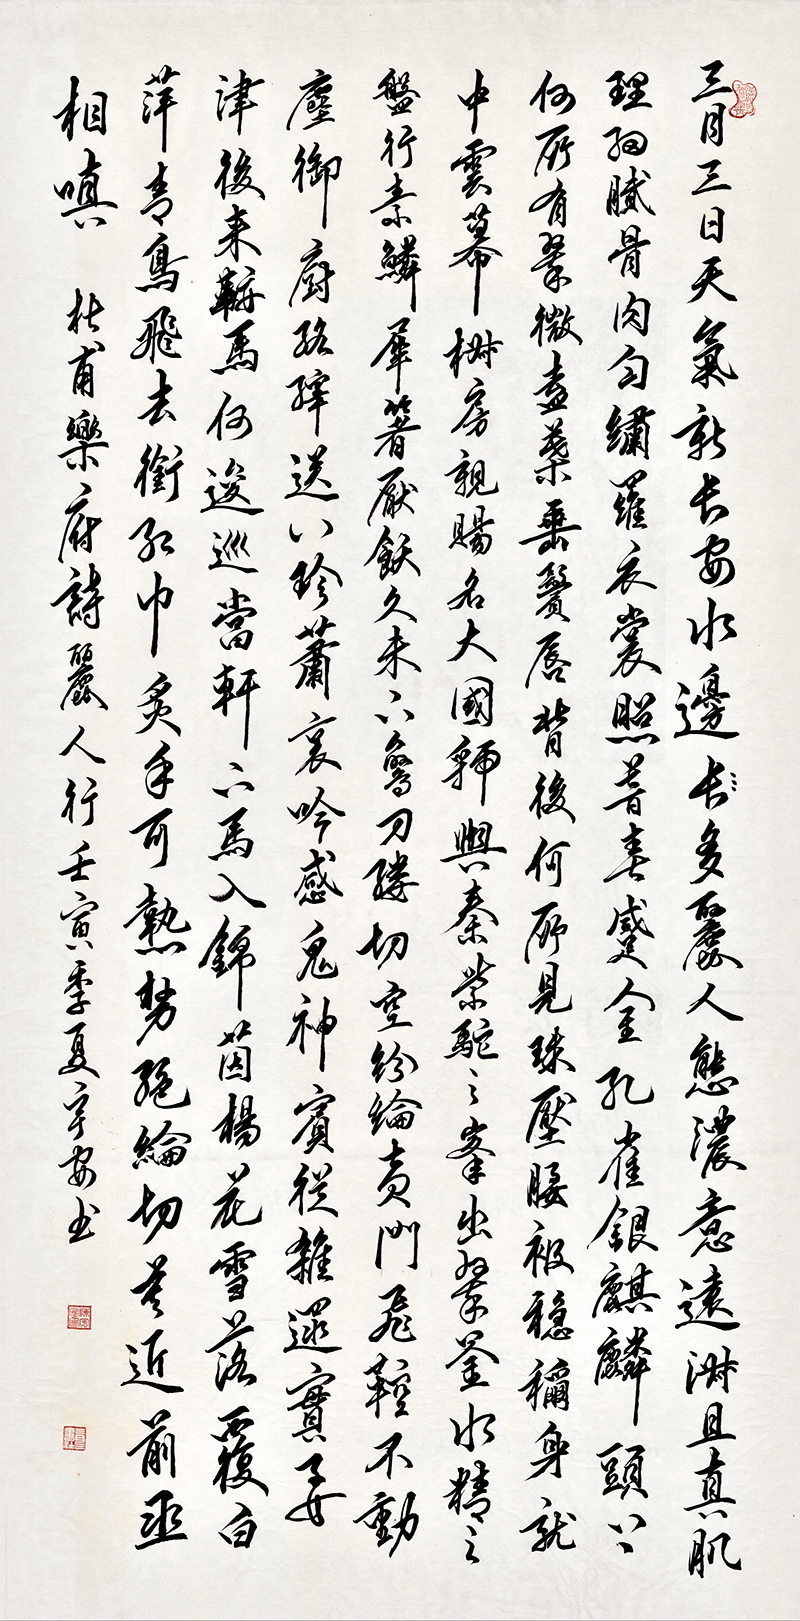 三月三日天氣新长安水邊长多麗人態濃意遠淑且真肌
理细膩骨肉匀繡羅衣裳照暮春蹙金孔雀銀麒麟頭上
何所有翠微盍葉垂鬢唇背後何所見珠壓腰衱穩稱身就
中雲幕椒房親賜名大國虢與秦紫駝之峯出翠釜水精之
盤行素鱗犀箸厭飫久未下鸞刀縷切空紛綸黄門飛鞚不動
塵御廚絡繹送八珍蕭哀吟感鬼神賓從雜遝實要
津後来鞍馬何逡巡當軒下馬入錦茵楊花雪落覆白
萍青鳥飛去銜红巾炙手可熱势絶綸切莫近前丞
相嗔 杜甫樂府詩麗人行壬寅季夏安书